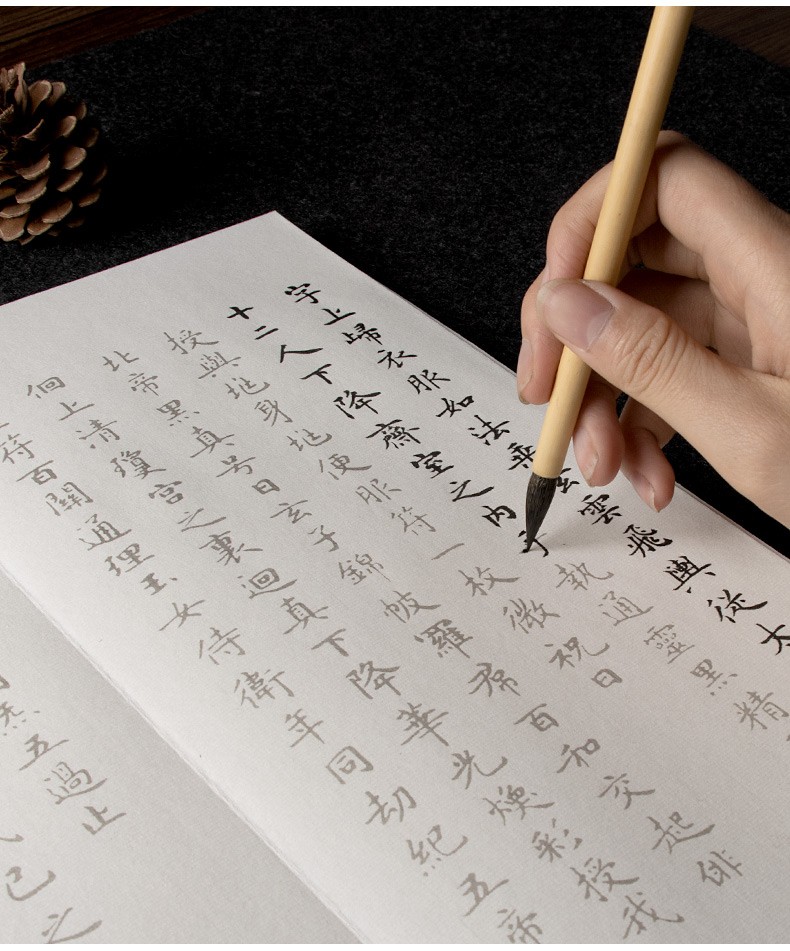 字上歸衣服如法乘玄雲飛輿從太
十二人下降齋室之内手執通靈黑精
授與兆身兆便服符一枚微祝曰
北帝黑真号曰玄子錦帔羅帬百和交起俳
佪上清瓊宮之裏迴真下降華光煥彩授我
符百關通理玉女侍衛年同劫紀五帝
炁五過止
已之